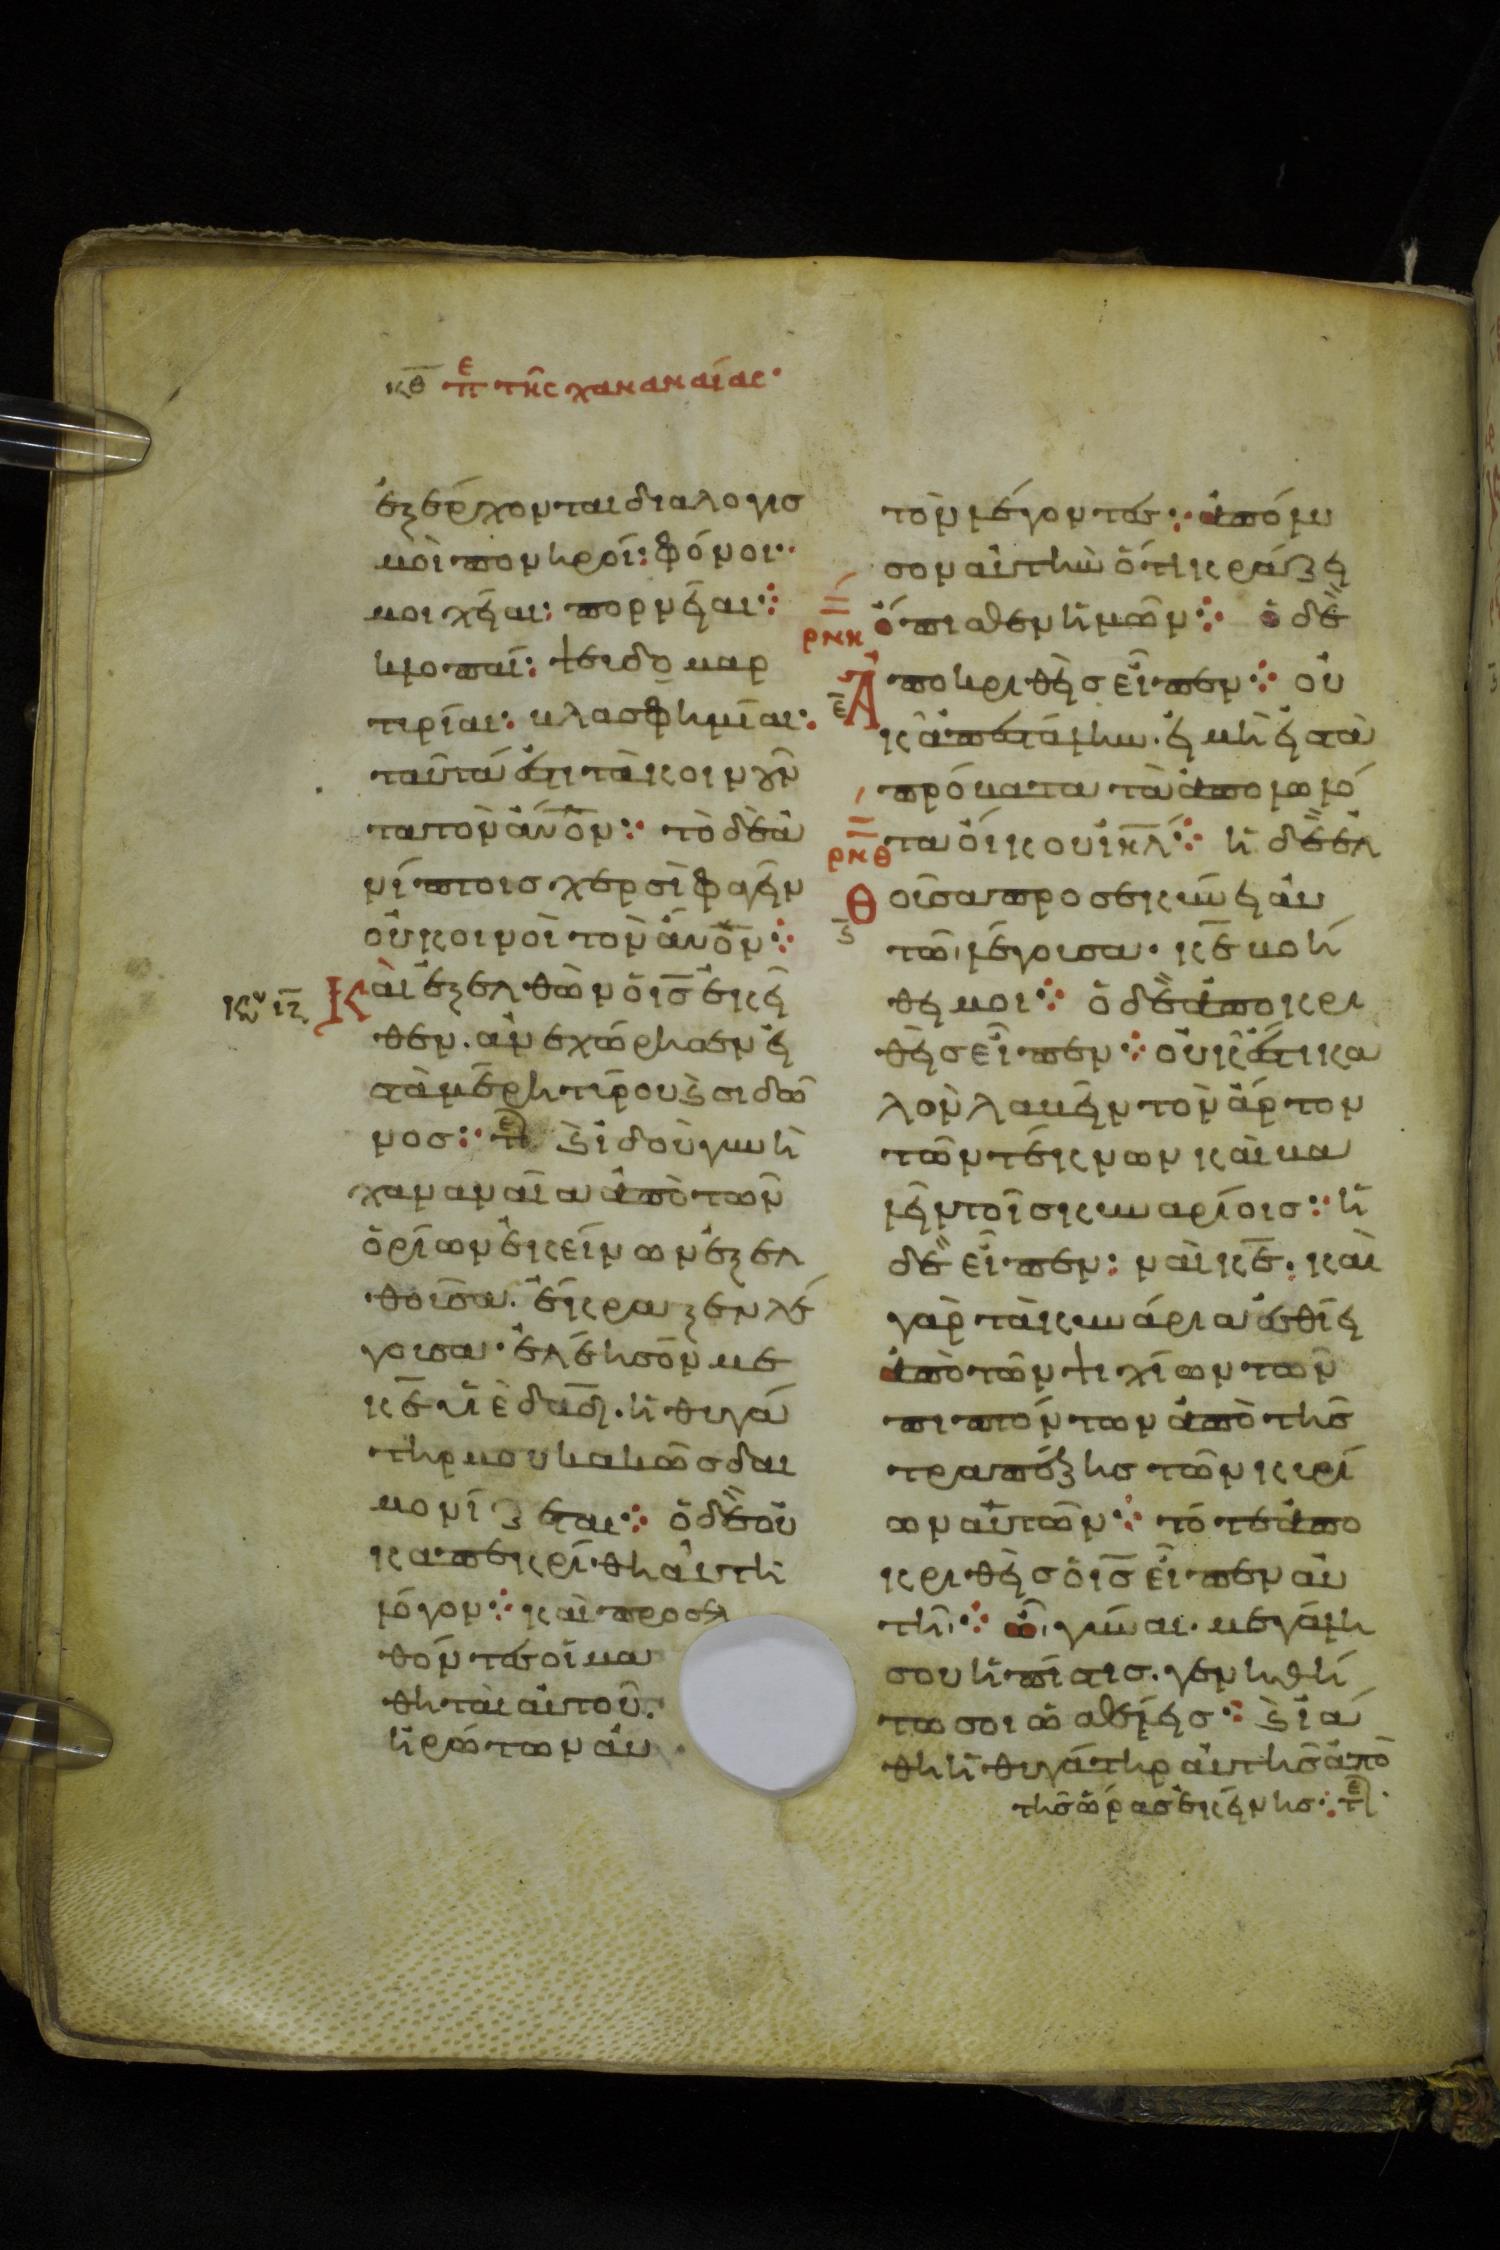 κθ πε της χαναναίας·
ἐξέρχονται διαλογισ
μοὶ πονηροί: φόνοι··
μοιχεῖαι: πορνεῖαι:·
κλοπαί: ψευδομαρ
τυρίαι: βλασφημίαι:
ταῦτά ἐστι τὰ κοινοῦν
τα τὸν ἄν̅ο̅ν:· τὸ δὲ ἀ
νίπτοις χερσὶ φαγεῖν
οὐ κοινοῖ τὸν ἄν̅ο̅ν:·
κυ ιζ Καὶ ἐξελθὼν ὁ ι̅ς̅ ἐκεῖ
θεν. ἀνεχώρησεν εἰ
στὰ μέρη τύρου ϗ σιδῶ
νος:· τε ϗ ἰδοὺ γυνὴ
χαναναῖα ἀπὸ τῶν
ὁρίων ἐκείνων ἐξελ
θοῦσα. ἔκραζεν λέ
γουσα· ἐλέησόν με
κ̅ε̅ υἱὲ δα̅δ̅. ἡ θυγά
τηρ μου κακῶς δαι
μονίζεται:· ὁ δὲ οὐ
κ ἀπεκρίθη αὐτῆ
λόγον:· καὶ προσελ
θόντες οἱ μα
θηταὶ αὐτοῦ.
ἠρώτων αὐ
τὸν λέγοντες:· ἀπόλυ
σον αὐτὴν ὅτι κράζει
ρκη ὄπισθεν ἡμῶν:· ὁ δὲ
ε Ἀποκριθεὶς εἶπεν:· οὐ
κ ἀπεστάλην. εἰ μὴ εἰς τὰ
πρόβατα τὰ ἀπολωλό
ρκθ τα οἴκου ι̅η̅λ̅:· ἡ δὲ ἐλ
ς Θοῦσα προσεκύνει αὐ
τῶ, λέγουσα· κ̅ε̅ βοή
θει μοι:· ὁ δὲ ἀποκρι
θεὶς εἶπεν:· οὐκ ἔστι κα
λὸν λαβεῖν τὸν ἄρτον
τῶν τέκνων καὶ βα
λεῖν τοῖς κυναρίοις:· ἡ
δὲ εἶπεν: ναὶ κ̅ε̅. καὶ
γὰρ τὰ κυνάρια ἐσθίει
ἀπὸ τῶν ψιχίων τῶν
πιπτόντων ἀπὸ τῆς
τραπέζης τῶν κυρί
ων αὐτῶν:· τότε ἀπο
κριθεὶς ὁ ι̅ς̅ εἶπεν αὐ
τῆ,:· ὦ, γύναι. μεγάλη
σου ἡ πίστις. γενηθή
τω σοι ὡς θέλεις:· ϗ ἰά
θη ἡ θυγάτηρ αὐτῆς ἀπὸ
τῆς ὥρας ἐκείνης:· τε